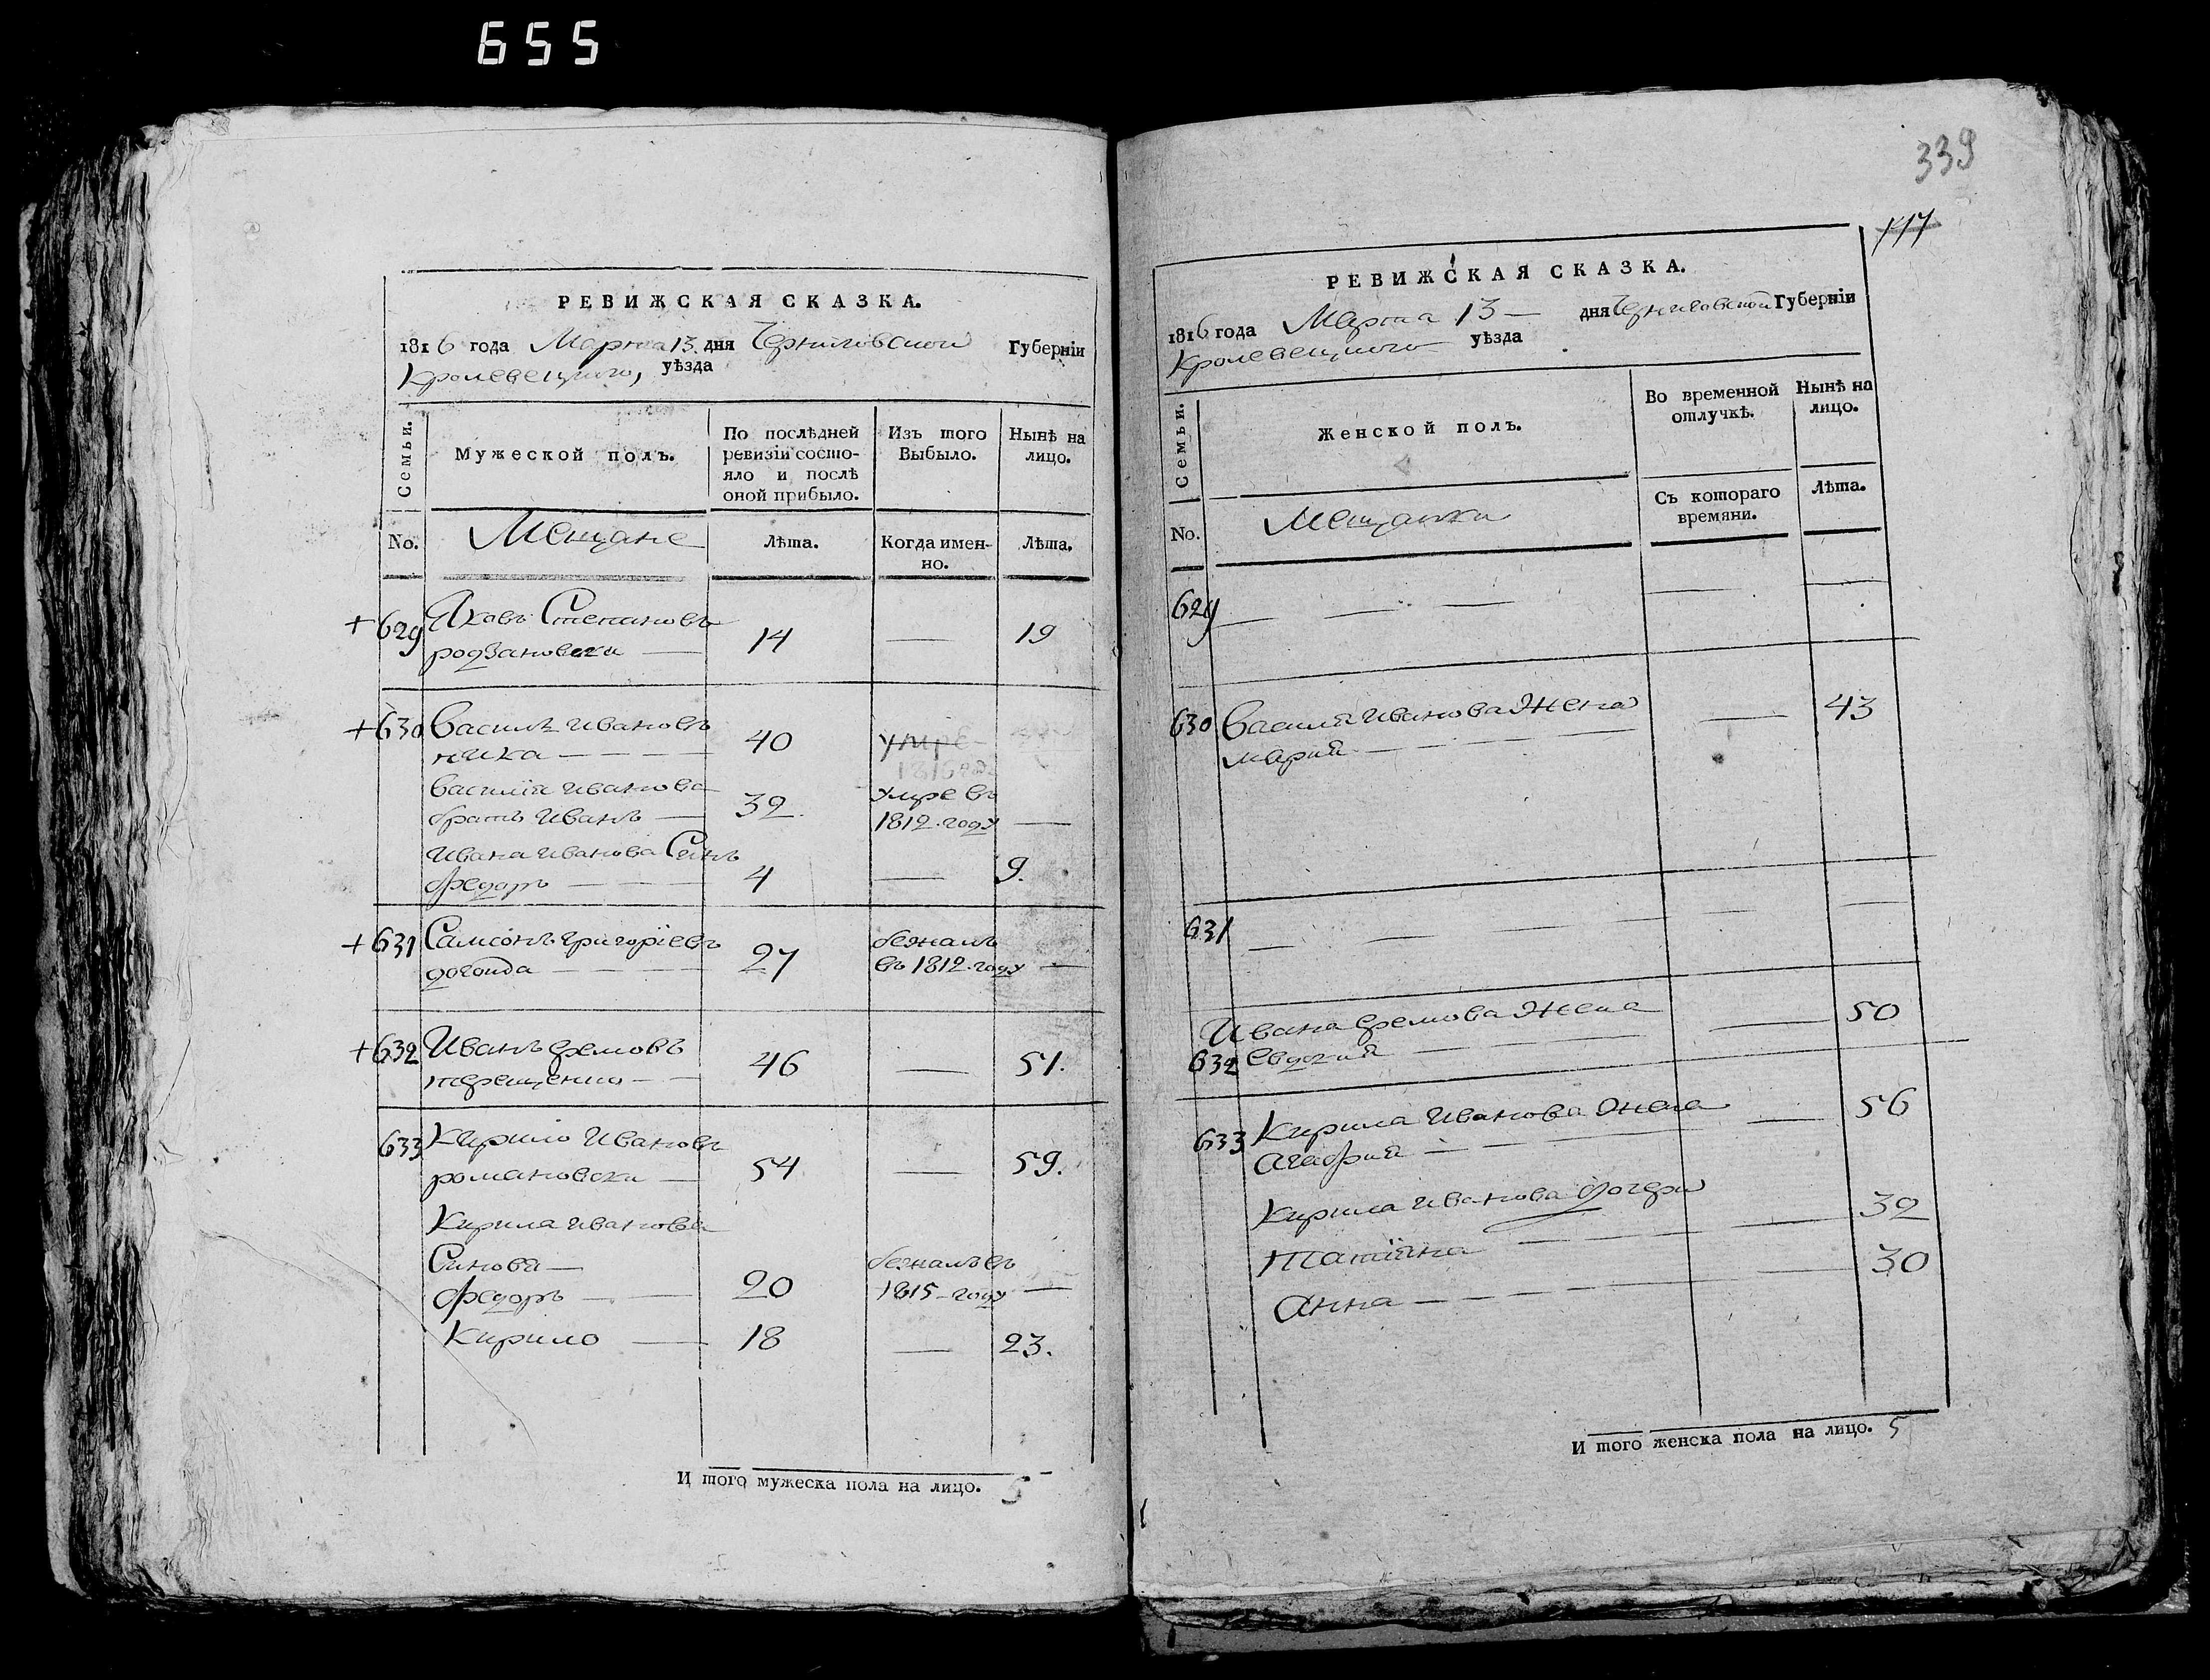 655
РЕВИЖСКАЯ СКАЗКА.
1816 года Марта 13. дня Черниговской Губерніи
Кролевецкого, уѣзда
Семьи.
Мужеской полъ.
По послѣдней ревизіи состо-
яло и послѣ
оной прибыло.
Изъ того
Выбыло.
Нынѣ на
лицо.
No.
Мещане
Лѣта.
Когда имен-
но.
Лѣта.
+629 Яковъ Степановъ
родзановски — 14 — 19
+630 Василь Ивановъ
40 умре
1816 год.
Василія Иванова
братъ Иванъ — 32. умре въ
1812. году —
Ивана Иванова Синъ
Федоръ — 4 — 9.
+631 Самсонъ Григоріевъ
27 бежалъ
въ 1812. году —
+632 Иванъ Ефремовъ
терещенко — 46 — 51.
633 Кирило Ивановъ
романовски — 54 — 59.
Кирила Иванова
Синова —
Федоръ — 20 бежалъ въ
1815 — году —
Кирило — 18 — 23.
И того мужеска пола на лицо. 5
339
117
РЕВИЖСКАЯ СКАЗКА.
1816 года Марта 13 — дня Черниговской Губерніи
Кролевецкого уѣзда
Семьи.
Женской полъ.
Во временной
отлучкѣ.
Нынѣ на
лицо.
No.
Мещанки
Съ котораго
времяни.
Лѣта.
629 — — —
630 Василія Иванова Жена
мария — — 43
631 — — —
Ивана Ефремова Жена
632 Евдокия — — 50
633 Кирила Иванова Жена
Агафия — — 56
Кирила Иванова Дочери
Татіяна — — 32
Анна — — 30
И того женска пола на лицо. 5